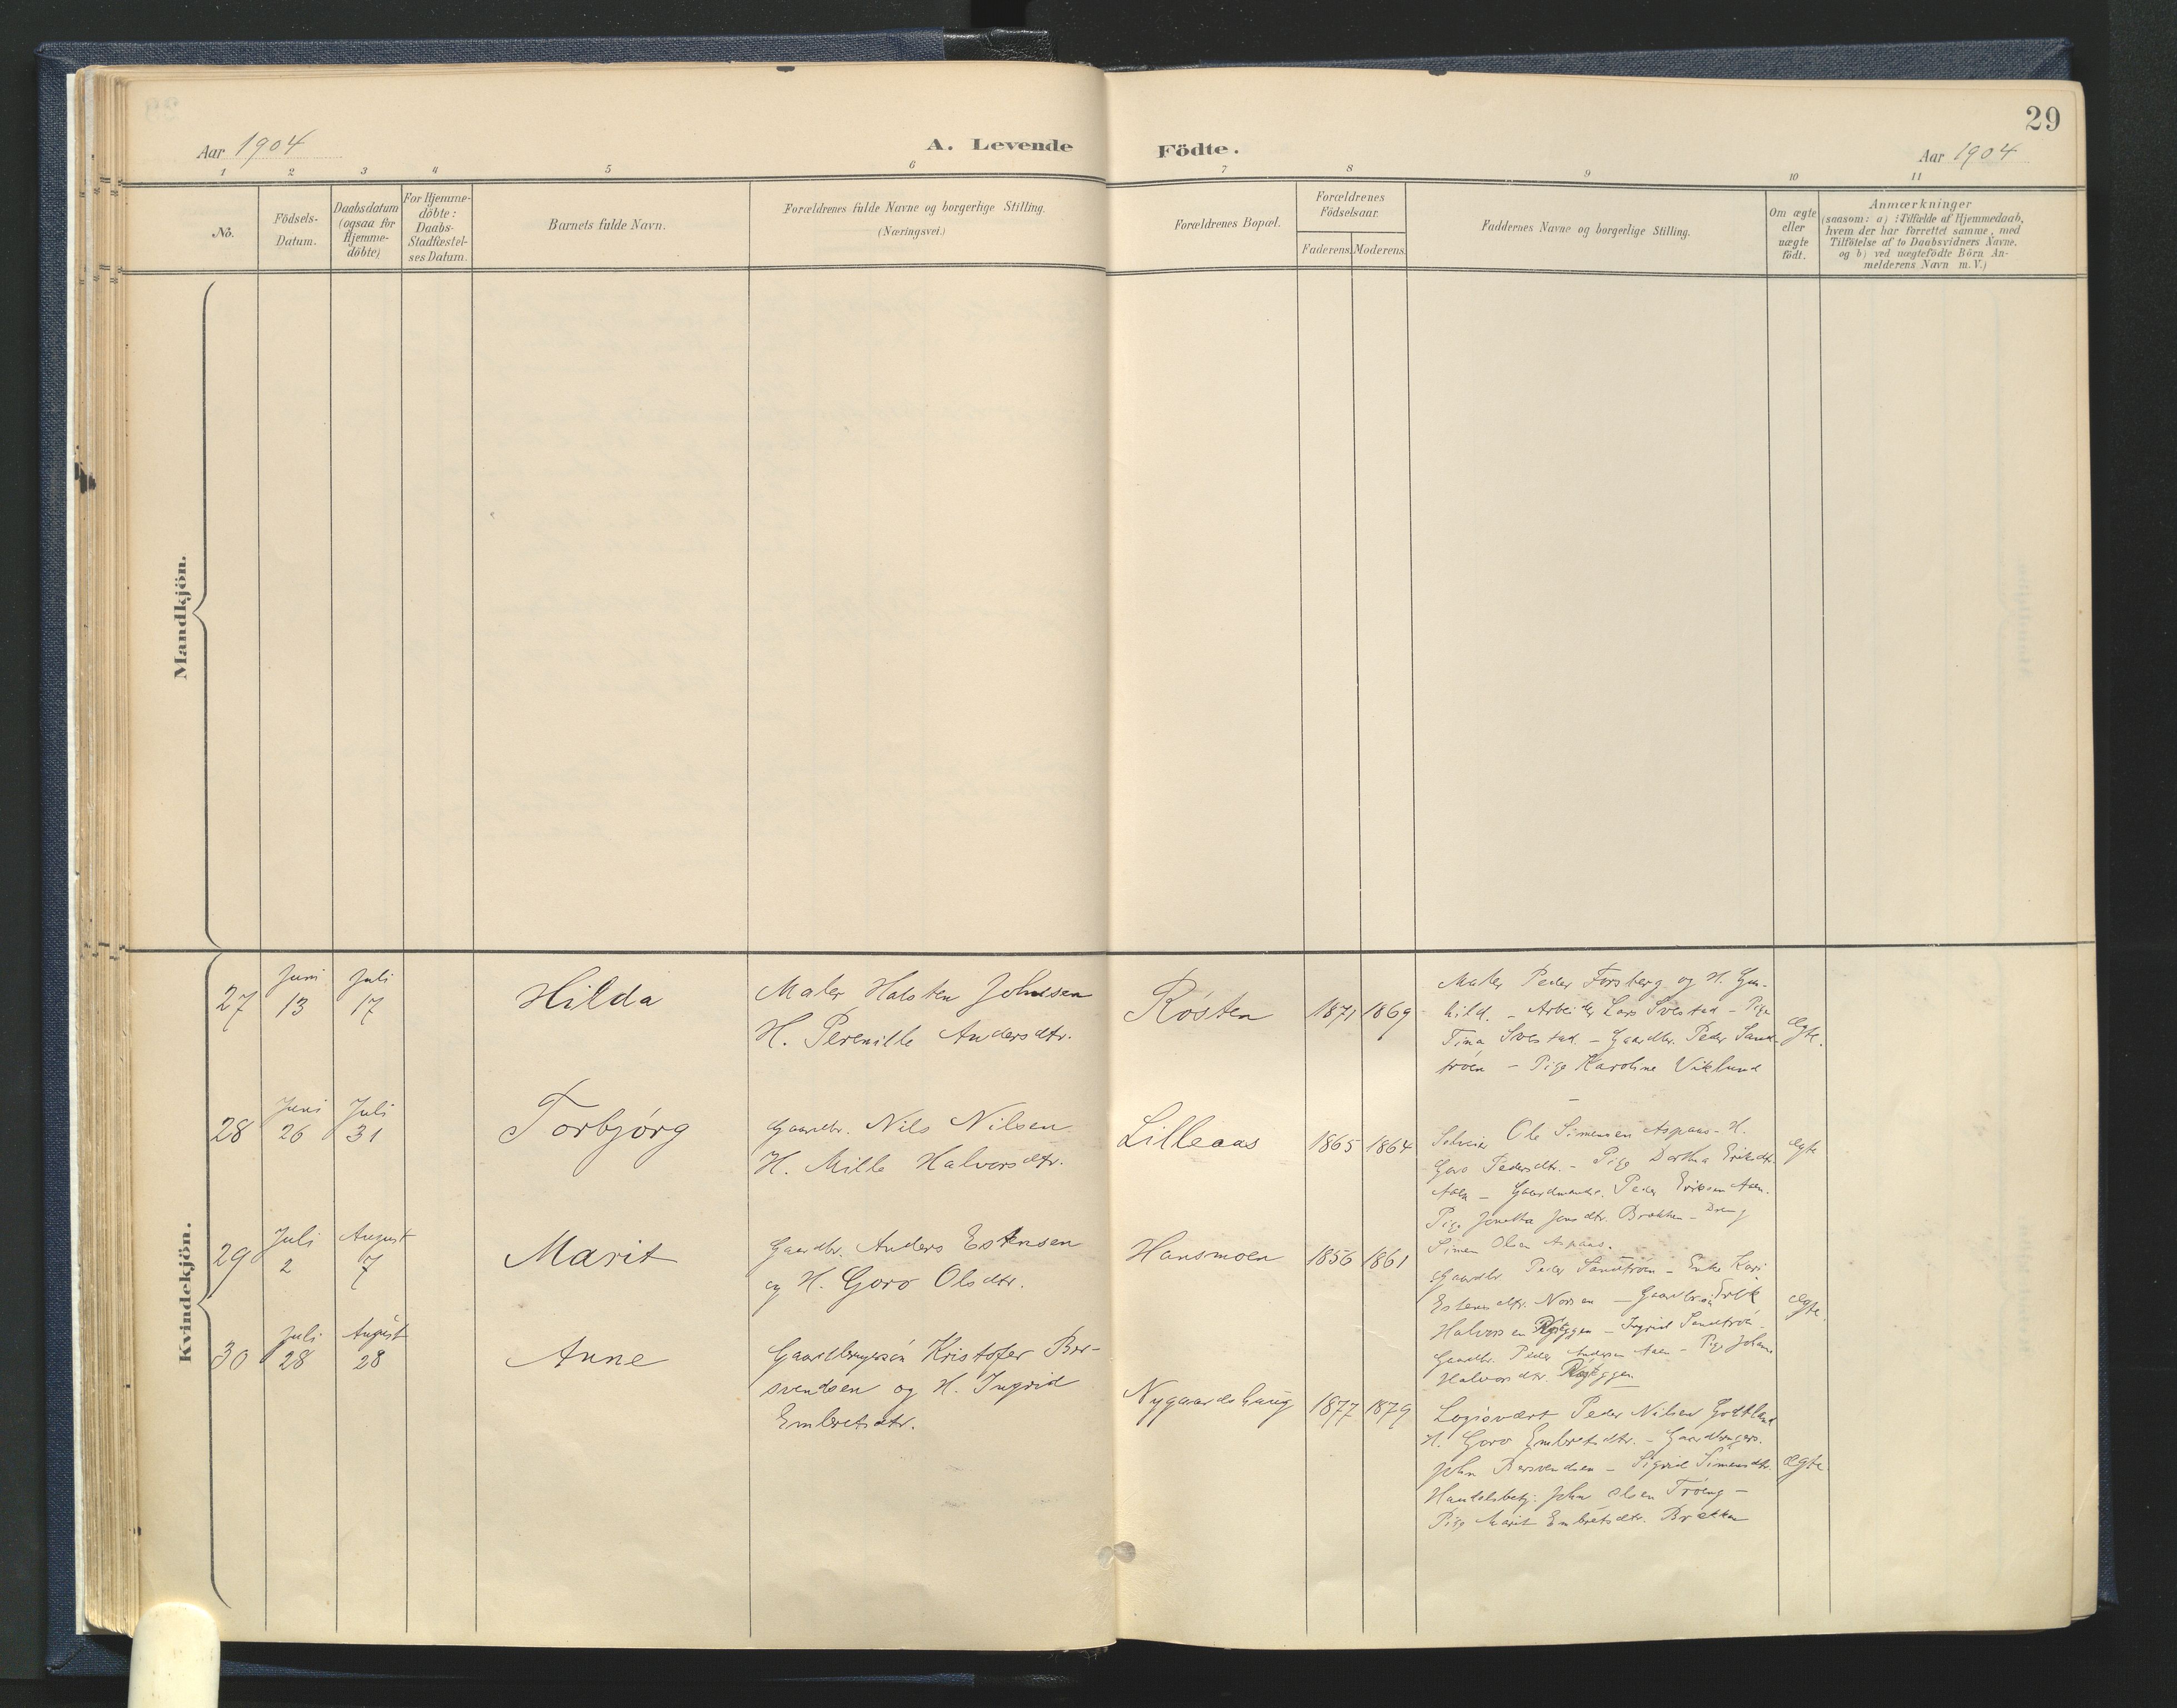 29
Aar 1904
A. Levende Födte.
Aar 1904
1 2 3 4 5 6 7 8 9 10 11
No.
Födsels-
Datum.
Daabsdatum
(ogsaa for
Hjemme-
döbte)
For Hjemme-
döbte:
Daabs-
Stadfæstel-
ses Datum.
Barnets fulde Navn.
Forældrenes fulde Navne og borgerlige Stilling.
(Næringsvei.)
Forældrenes Bopæl.
Forældrenes
Födselsaar.
Faderens. Moderens.
Faddernes Navne og borgerlige Stilling.
Om ægte
eller
uægte
födt.
Anmærkninger
(saasom: a) i Tilfælde af Hjemmedaab,
hvem der har forrettet samme, med
Tilföielse af to Daabsvidners Navne,
og b) ved uægtefödte Börn An-
melderens Navn m.V.)
Mandkjön.
Kvindekjön.
27
Juni
13
Juli
17
Hilda
Maler Halsten Johnsen
H. Pernille Andersdtr.
Røsten
1871 1869
Maler Peder Forsberg og H. Gun-
hild. - Arbeider Lars Svestad - Pige
Tina Svestad. - Gaardbr. Peder Sand-
trøen - Pige Karoline Viklund
ægte.
28
Juni
26
Juli
31
Torbjørg
Gaardbr. Nils Nilsen
H. Mille Halvorsdtr.
Lilleaas
1865 1864
Ole Simensen Aspaas - H.
Goro Pedersdtr. - Pige Dorthea Eriksdtr.
Aaen - Gaardmand. Peder Eriksen Aaen.
Pige Jonetta Jonsdtr. Brækken - Dreng
Simen Olsen Aspaas.
ægte
29
Juli
2
August
7
Marit
Gaardbr. Anders Estensen
og H. Goro Olsdtr.
Hansmoen
1856 1861
Gaardbr. Peder Sandtrøen - Enke Kari
Estensdtr. - Gaardbr. Erik
Halvorsen - Ingrid Sandtrøen
Gaardbr. Peder Andersen Aaen - Pige Johanna
Halvorsdtr.
ægte.
30
Juli
28
August
28
Anne
Gaardbrugersøn Kristofer Ber-
svendsen og H. Ingrid
Embretsdtr.
Nygaardshaug
1877 1879
Logisvært Peder Nilsen Godtland
H. Goro Embretsdtr. - Gaardbrugers.
John Bersvendsen - Sigrid Simensdtr.
Handelsbetj. John Olsen Trøeng -
Pige Marit Embretsdtr. Brækken
ægte.